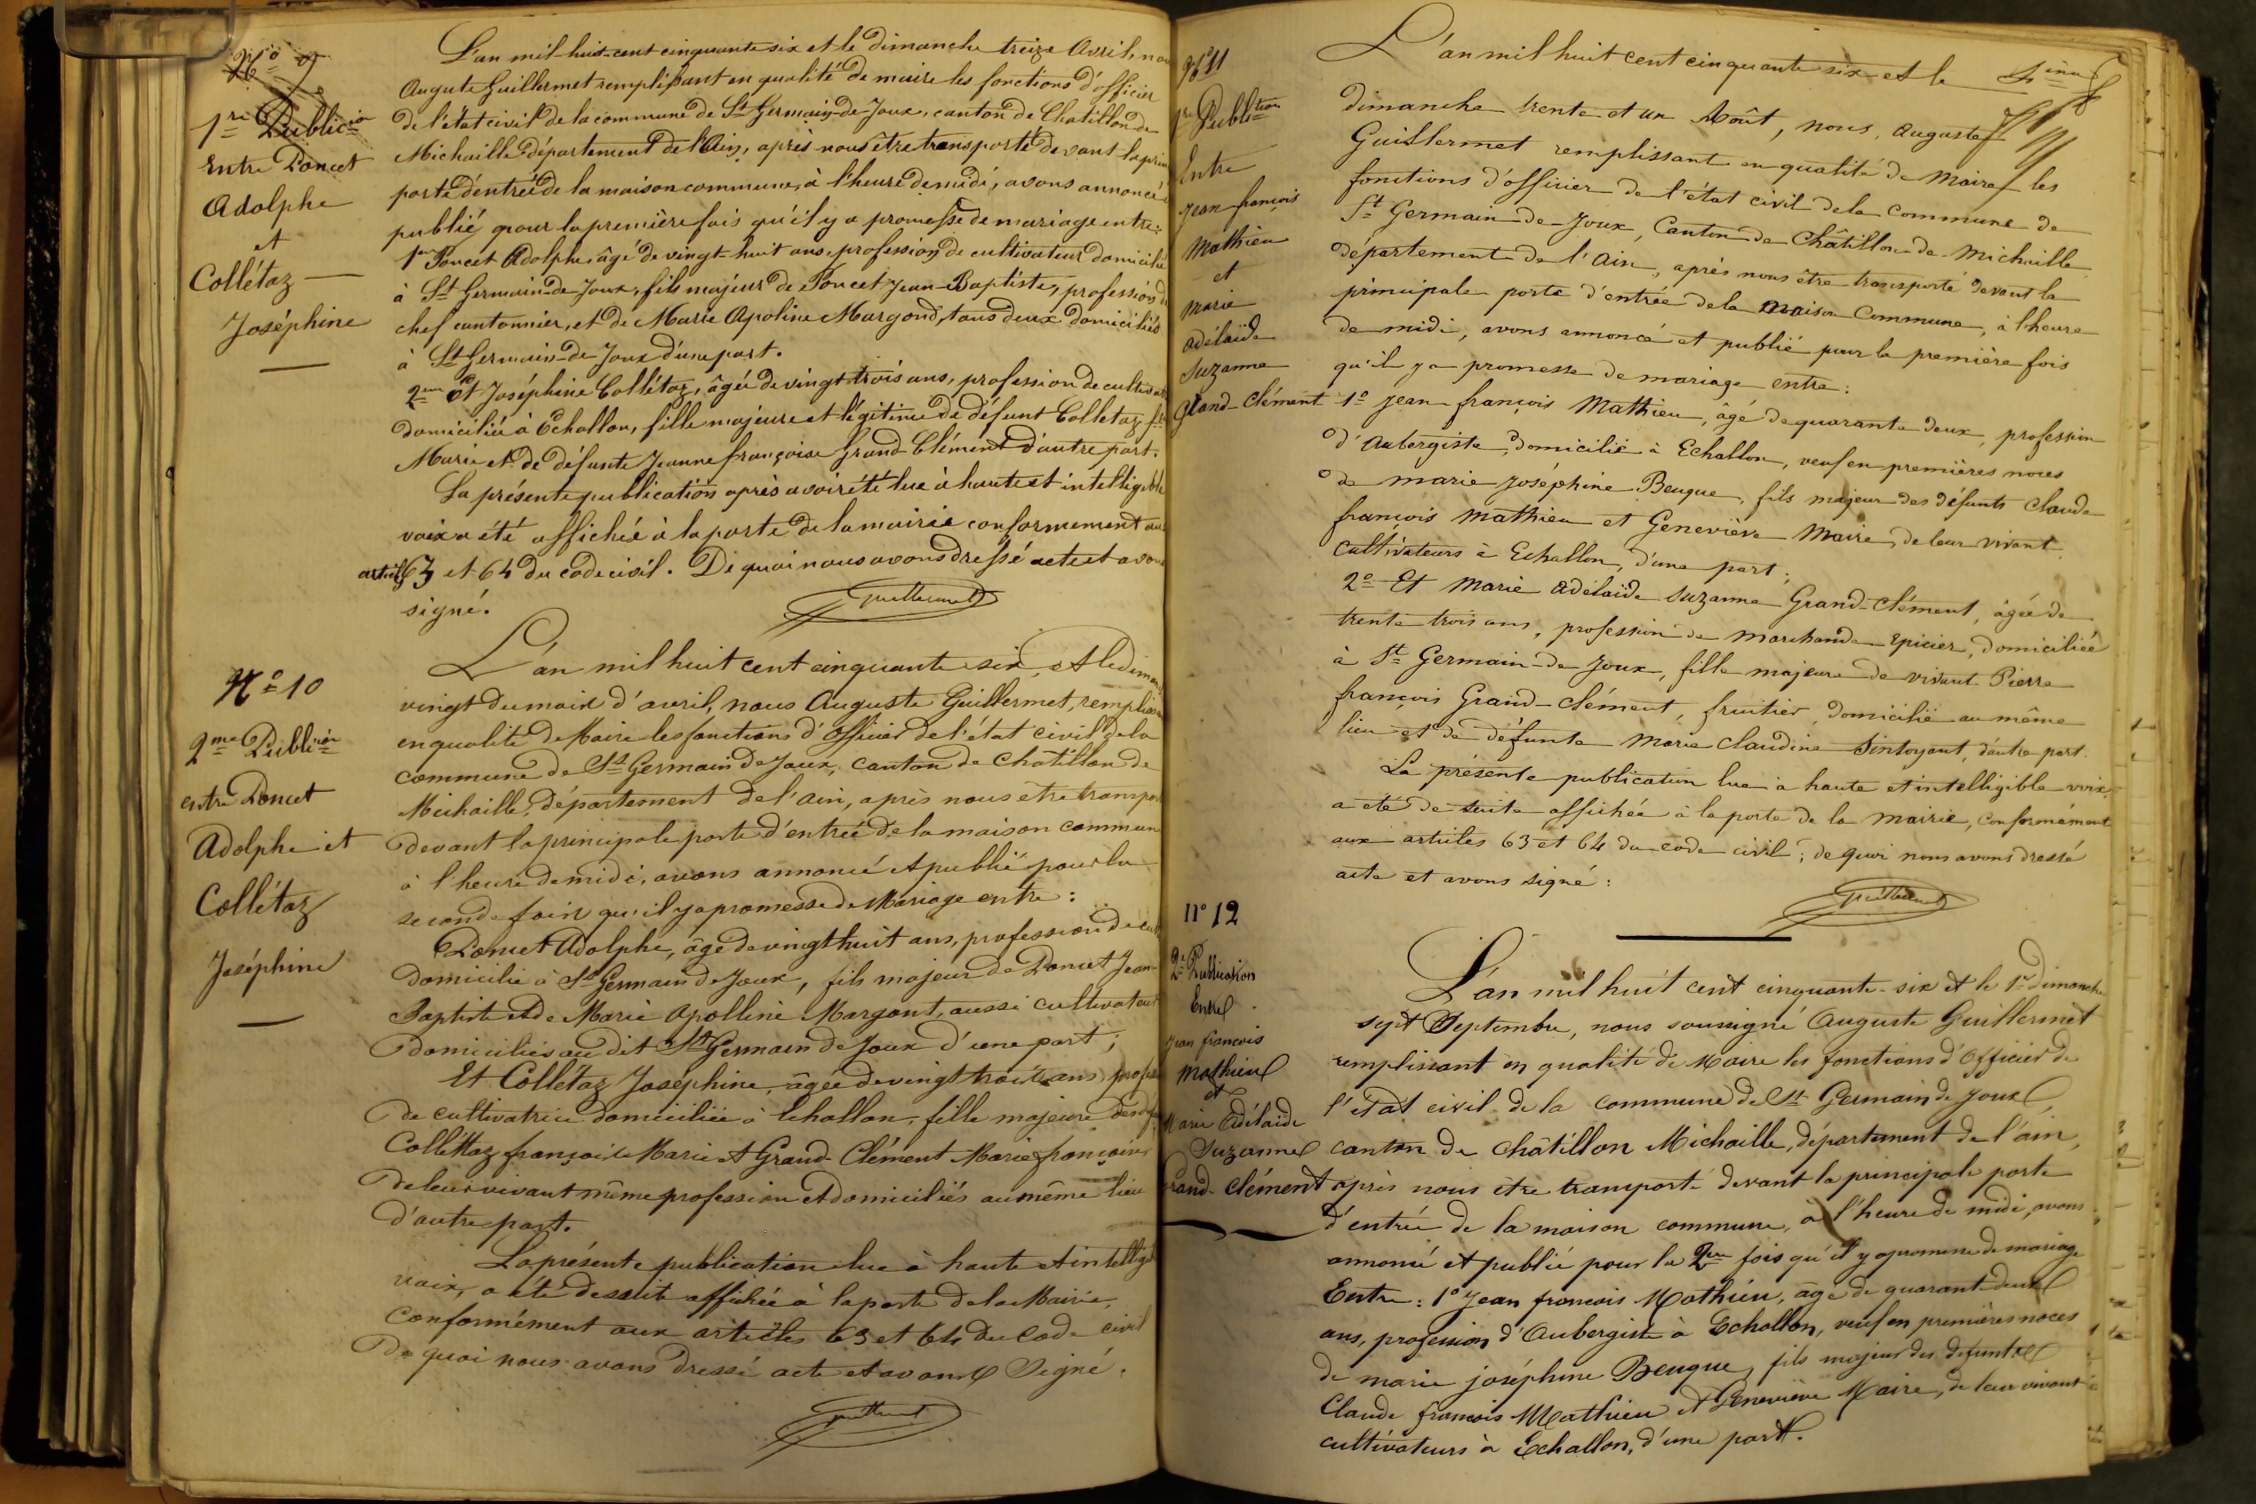 N° 9
1re Publicion
Entre Poncet
Adolphe
et
Collétaz
Joséphine
L'an mil-huit-cent cinquante six et le dimanche treize Avril, nous
Auguste Guillermet remplissant en qualité de maire les fonctions d'officier
de l'état civil de la commune de St Germain-de-Joux, canton de Chatillon-de
Michaille département de l'Ain, après nous être transporté devant la prin
porte d'entrée de la maison commune, à l'heure de midi, avons annoncé
publié pour la première fois qu'il y a promesse de mariage entre:
1er Poncet Adolphe âgé de vingt-huit ans, profession de cultivateur domicilié
à St Germain-de-Joux, fils majeur de Poncet Jean-Baptiste, profession de
chef cantonnier, et de Marie Apoline Margond, tous deux domiciliés
à St Germain-de-Joux d'une part.
2eme Et Joséphine Collétaz, âgée de vingt-trois ans, profession de cultivat
domiciliée à Echallon, fille majeure et légitime de défunt Colletaz
Marie et de défunte Jeanne françoise Grand-Clément d'autre part.
La présente publication après avoir été lue à haute et intelligible
voix a été affichée à la porte de la mairie conformement aux
articles 63 et 64 du code civil. De quoi nous avons dressé acte et avons
signé.
Guillermet
N° 10
2me Publicion
entre Poncet
Adolphe et
Collétaz
Joséphine
L'an mil huit cent cinquante six, et le diman
vingt du mois d'avril, nous Auguste Guillermet, remplissan
en qualité de Maire les fonctions d'Officier de l'état civil de la
commune de St Germain de Joux, canton de Châtillon de
Michaille, département de l'ain, après nous être transpor
devant la principale porte d'entrée de la maison commun
à l'heure de midi, avons annoncé et publié pour la
seconde fois qu'il y a promesse de Mariage entre:
Poncet Adolphe, âgé de vingt huit ans, profession de cul
domicilié à St Germain de Joux, fils majeur de Poncet Jean-
Baptiste et de Marie Apolline Margont, aussi cultivateurs
domiciliés au dit St Germain de Joux d'une part;
Et Collétaz Joséphine, âgée de vingt trois ans, profess
de cultivatrice domiciliée à Echallon, fille majeure des def
Collétaz françois Marie et Grand-Clément Marie françoise
de leur vivant même profession et domiciliés au même lieu
d'autre part.
La présente publication lue à haute et intellig
voix, a été de suite affichée à la porte de la Mairie,
conformément aux articles 63 et 64 du code civil
De quoi nous avons dressé acte et avons signé.
Guillermet
N° 11
1re Publition
Entre
Jean-françois
Mathieu
et
Marie
adélaïde
Suzanne
Grand-Clément
L'an mil huit cent cinquante six et le
dimanche trente et un Août, nous, Auguste
Guillermet remplissant en qualité de Maire les
fonctions d'officier de l'état civil de la commune de
St Germain-de-Joux, Canton de Châtillon-de-Michaille
département de l'Ain, après nous être transporté devant la
principale porte d'entrée de la maison Commune, à l'heure
de midi, avons annoncé et publié pour la première fois
qu'il y a promesse de mariage entre:
1° Jean-françois Mathieu, âgé de quarante deux, profession
d'Aubergiste, domicilié à Echallon, veuf en premières noces
de marie Joséphine Beuque, fils majeur des défunts Claude
françois Mathieu et Geneviève Maire, de leur vivant
cultivateurs à Echallon, d'une part;
2° Et Marie Adélaïde Suzanne Grand-Clément, âgée de
trente trois ans, profession de marchande Epicier, domiciliée
à St Germain-de-Joux, fille majeure de vivant Pierre
françois Grand-Clément, fruitier, domicilié au même
lieu et de défunte Marie Claudine Sintoyant, d'autre part.
La présente publication lue à haute et intelligible voix,
a été de suite affichée à la porte de la Mairie, conformément
aux articles 63 et 64 du code civil; de quoi nous avons dressé
acte et avons signé:
Guillermet
N° 12
2e Publication
Entre
Jean françois
Mathieu
et
Marie Adélaïde
Suzanne
Grand-Clément
L'an mil huit cent cinquante-six et le 1er dimanche
sept Septembre, nous soussigné Auguste Guillermet
remplissant en qualité de Maire les fonctions d'Officier de
l'état civil de la commune de St Germain de Joux
canton de Châtillon Michaille, département de l'ain,
après nous être transporté devant la principale porte
d'entrée de la maison commune, à l'heure de midi, avons
annoncé et publié pour la 2me fois qu'il y a promesse de mariage
Entre: 1° Jean françois Mathieu, âgé de quarante deux
ans, profession d'Aubergiste à Echallon, veuf en premières noces
de marie joséphine Beuque, fils majeur des defunts
Claude françois Mathieu et Geneviève Maire, de leur vivant
cultivateurs à Echallon, d'une part.